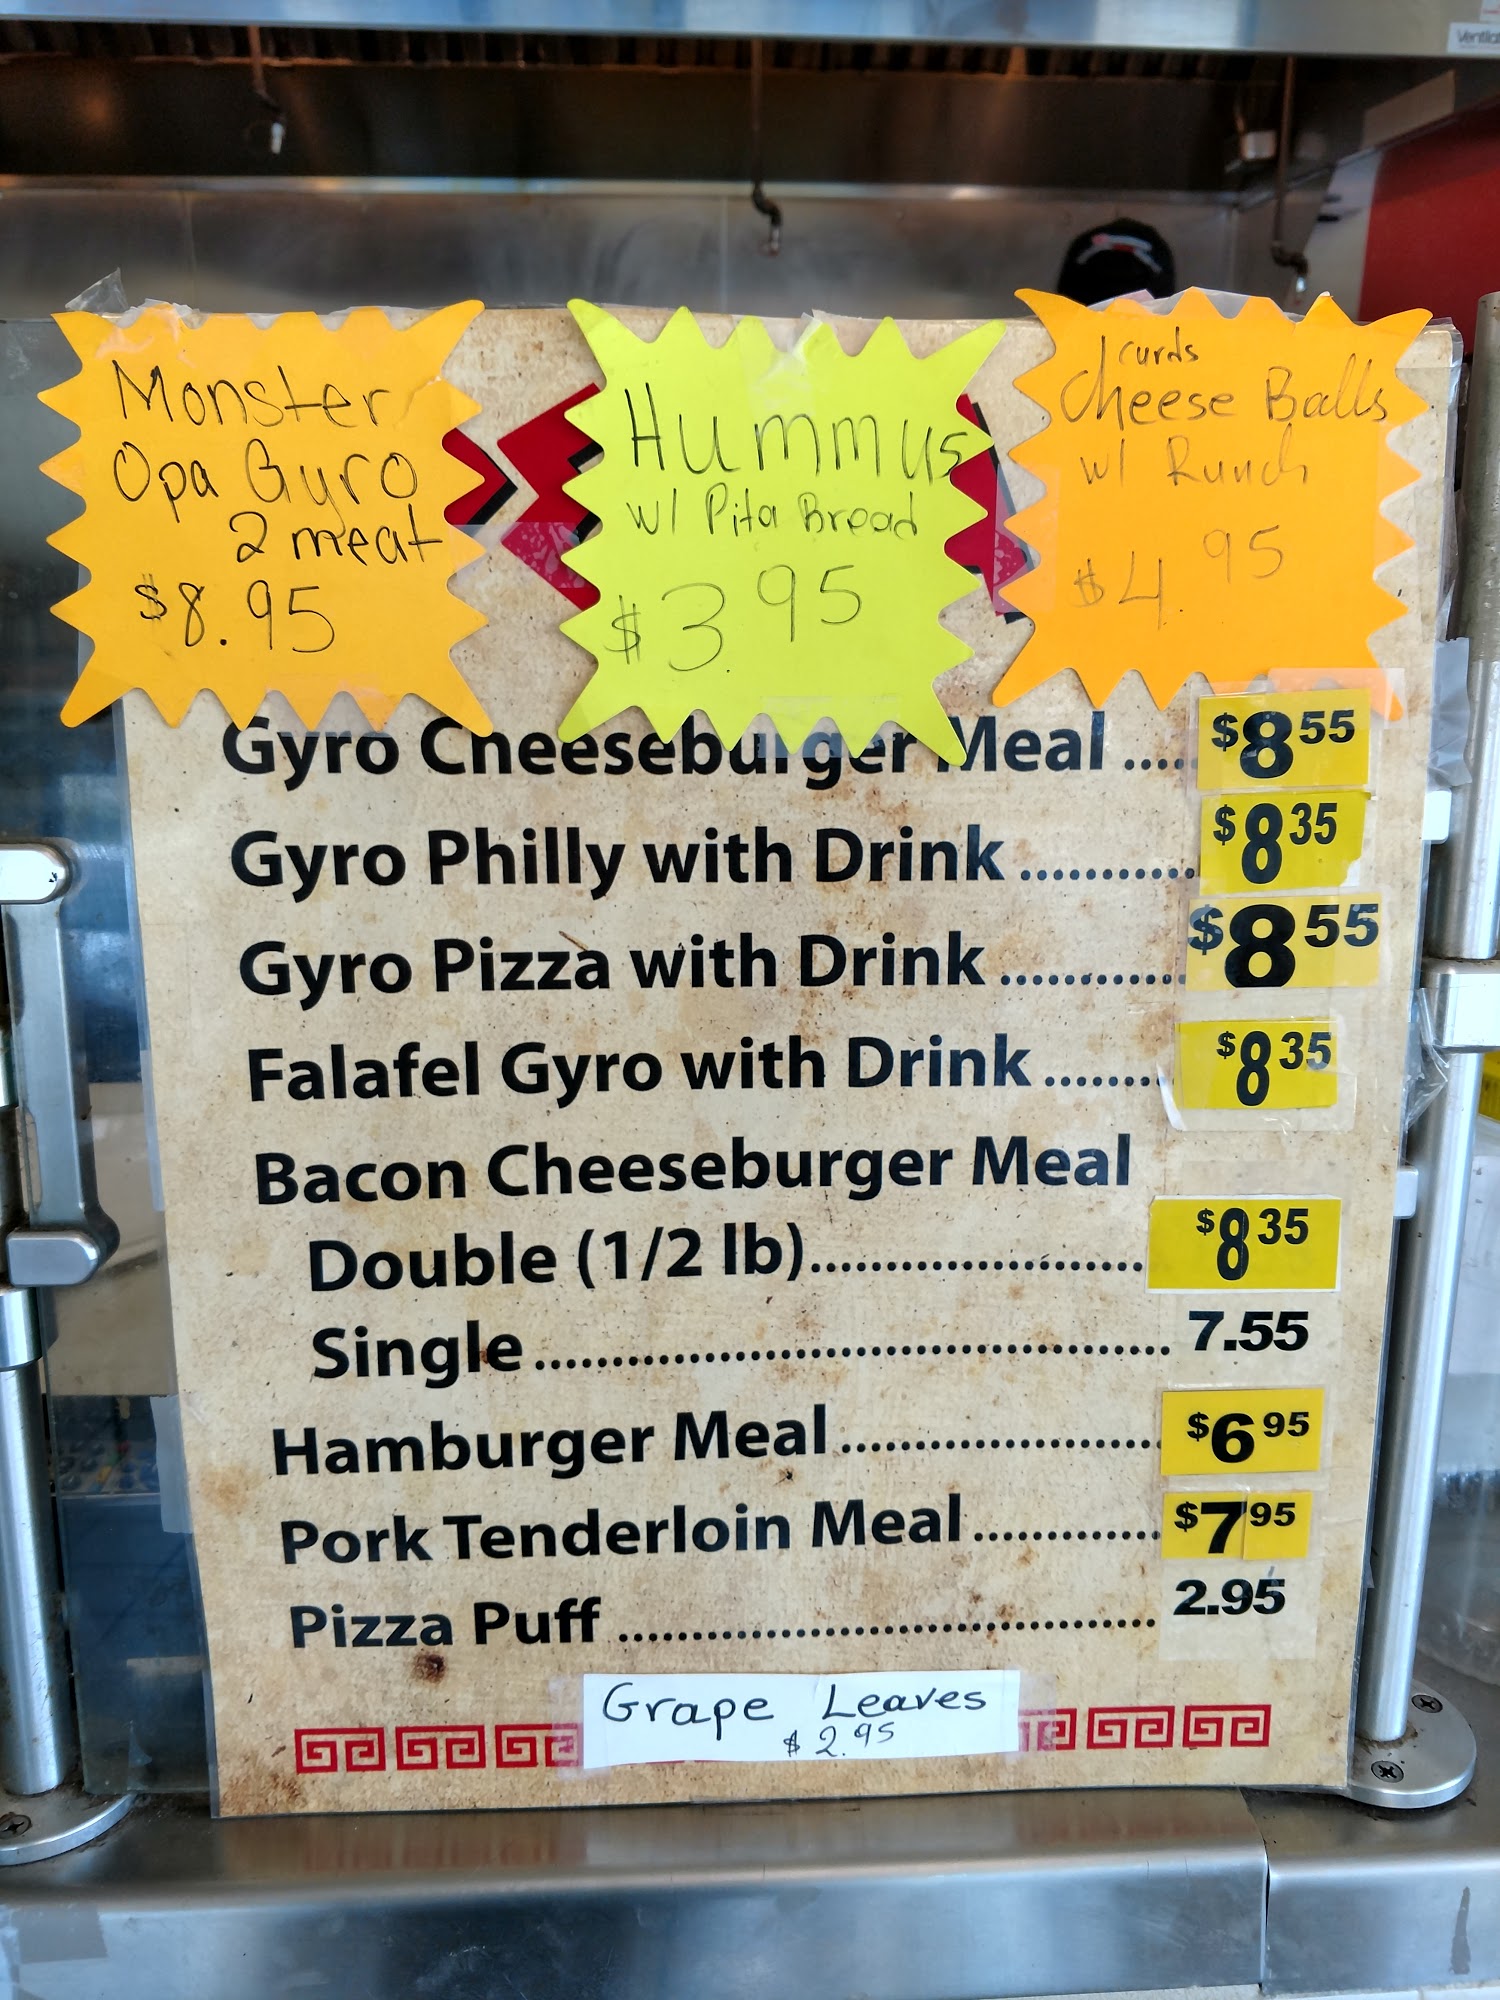 Ventila
Monster
Opa Gyro
2 meat
$8.95
Hummus
w/ Pita Bread
$3.95
curds
Cheese Balls
w/ Runch
$4.95
Gyro Cheeseburger Meal ..... $8 55
Gyro Philly with Drink ............ $8 35
Gyro Pizza with Drink ............ $8 55
Falafel Gyro with Drink ........ $8 35
Bacon Cheeseburger Meal
Double (1/2 lb)...................... $8 35
Single.......................................... 7.55
Hamburger Meal ..................... $6 95
Pork Tenderloin Meal ............. $7 95
Pizza Puff .................................... 2.95
Grape Leaves
$2.95